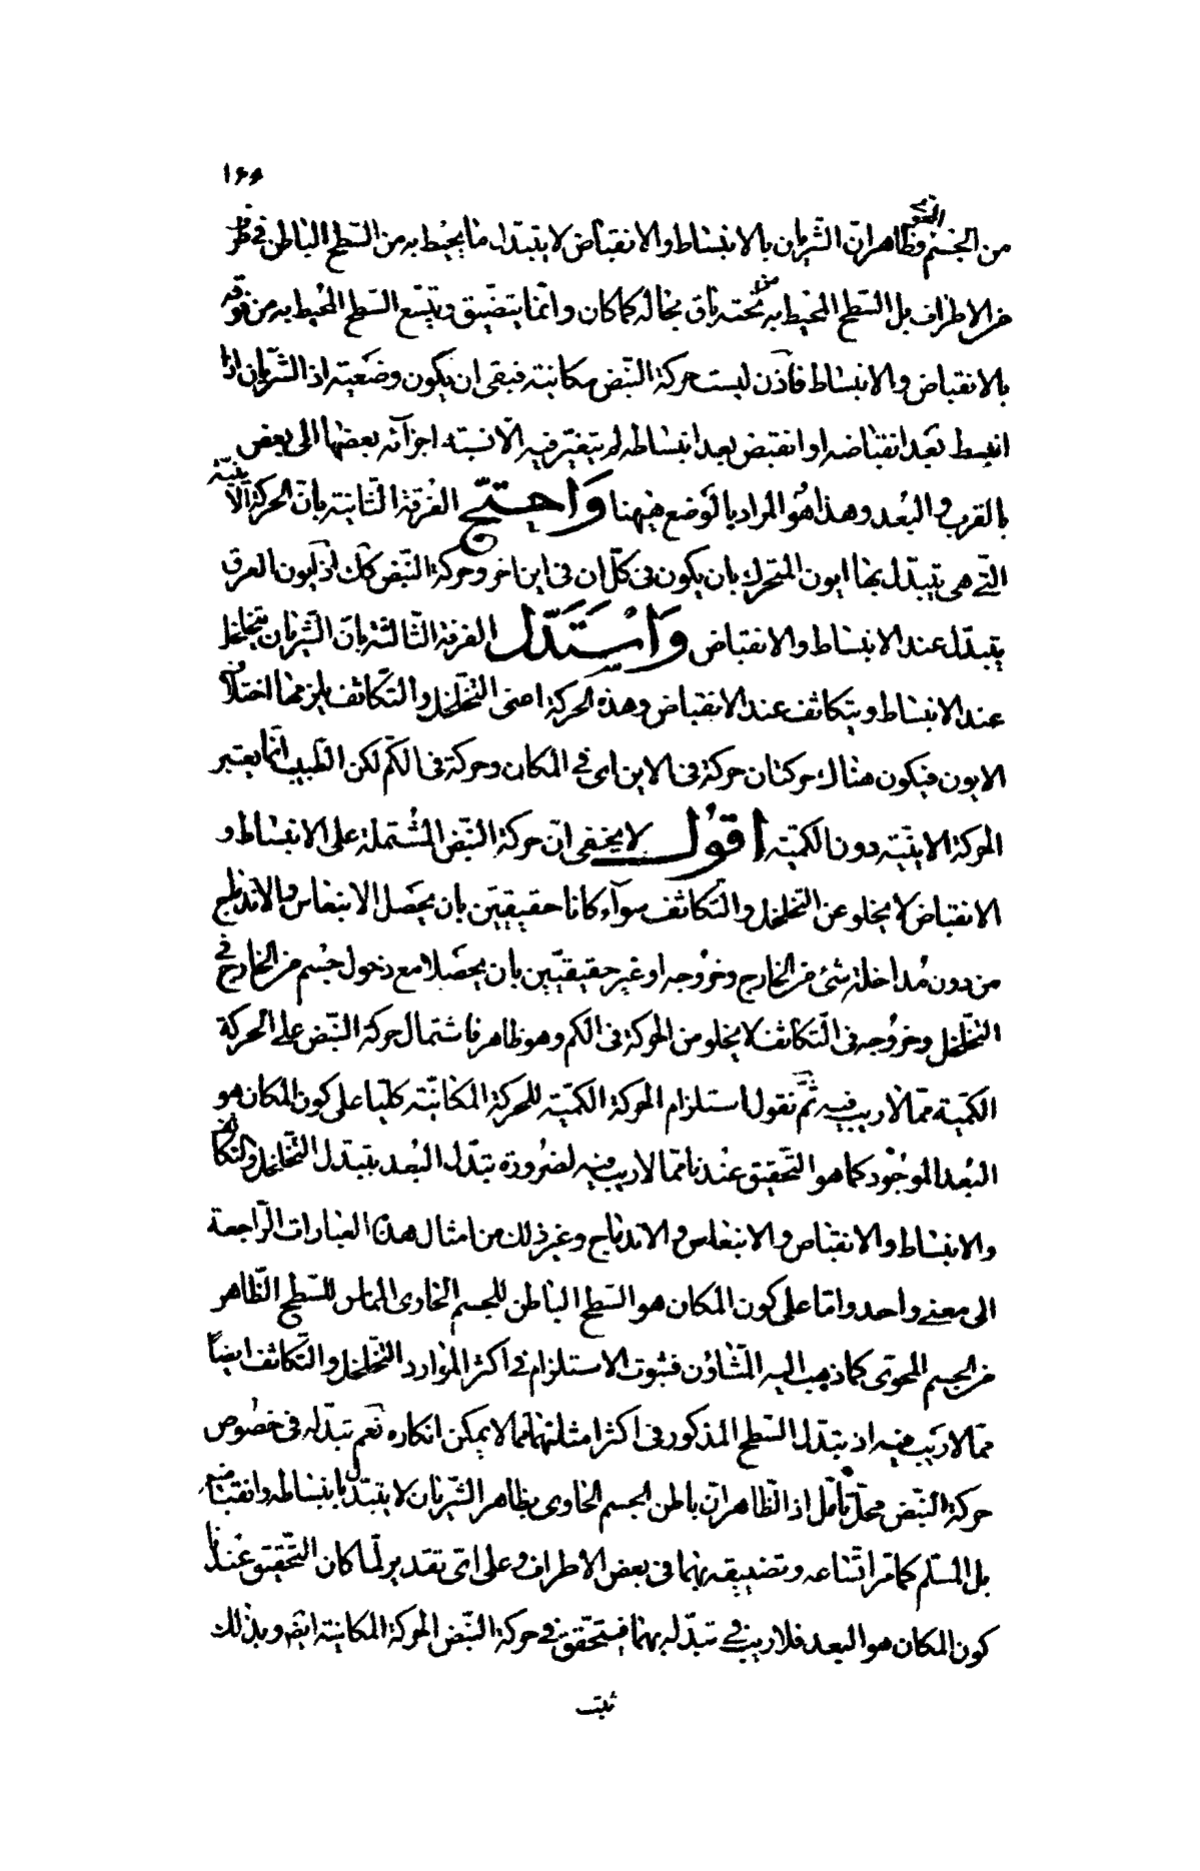 ١٦٥
من الجسم الفوقى وظاهر ان الشريان بالانبساط والانقباض لا يتبدل ما يحيط به من السطح الباطن فى طرف
من الاطراف بل السطح المحيط به من تحته باق بحاله كما كان وانما يتضيق ويتسع السطح المحيط به من فوقه
بالانقباض والانبساط فاذن ليست حركة النبض مكانية فبقى ان يكون وضعية اذ الشريان اذا
انبسط بعد انقباضه او انقبض بعد انبساطه لم يتغير فيه الا نسبة اجزآئه بعضها الى بعض
بالقرب والبعد وهذا هو المراد بالوضع هيهنا واحتج الفرقة الثانية بان الحركة الاينية
التى هى يتبدل بها ايون المتحرك بان يكون فى كل ان فى اين اخر وحركة النبض كك اذ ايون العرق
يتبدل عند الانبساط والانقباض واستدل الفرقة الثالثة بان الشريان يتخلخل
عند الانبساط ويتكاثف عند الانقباض وهذه الحركة اعنى التخلخل والتكاثف يلزمها اختلاف
الايون فيكون هناك حركتان حركة فى الاين اى فى المكان وحركة فى الكم لكن الطبيب انما يعتبر
الحركة الاينية دون الكمية اقول لا يخفى ان حركة النبض المشتملة على الانبساط و
الانقباض لا يخلو عن التخلخل والتكاثف سوآء كانا حقيقيين بان يحصل الانتفاش والاندماج
من دون مداخلة شئ من الخارج وخروجه او غير حقيقيين بان يحصلا مع دخول جسم من الخارج فى
التخلخل وخروجه فى التكاثف لا يخلو من الحركة فى الكم وهو ظاهر فاشتمال حركة النبض على الحركة
الكمية مما لا ريب فيه ثم نقول استلزام الحركة الكمية للحركة المكانية كليا على كون المكان هو
البعد الموجود كما هو التحقيق عندنا مما لا ريب فيه لضرورة تبدل البعد بتبدل التخلخل والتكاثف
والانبساط والانقباض والانتفاش والاندماج وغير ذلك من امثال هذه العبارات الراجعة
الى معنى واحد واما على كون المكان هو السطح الباطن للجسم الحاوى المماس للسطح الظاهر
من الجسم المحوى كما ذهب اليه المشاؤن فثبوت الاستلزام فى اكثر الموارد التخلخل والتكاثف ايضاً
مما لا ريب فيه اذ تبدل السطح المذكور فى اكثر امثلتهما مما لا يمكن انكاره نعم تبدله فى خصوص
حركة النبض محل تأمل اذ الظاهر ان باطن الجسم الحاوى بظاهر الشريان لا يتبدل بانبساطه وانقباضه
بل المسلم كما مر اتساعه وتضييقه بهما فى بعض الاطراف وعلى اى تقدير لما كان التحقيق عندنا
كون المكان هو البعد فلا ريب فى تبدله بهما فيتحقق فى حركة النبض الحركة المكانية ايضه وبذلك
ثبت